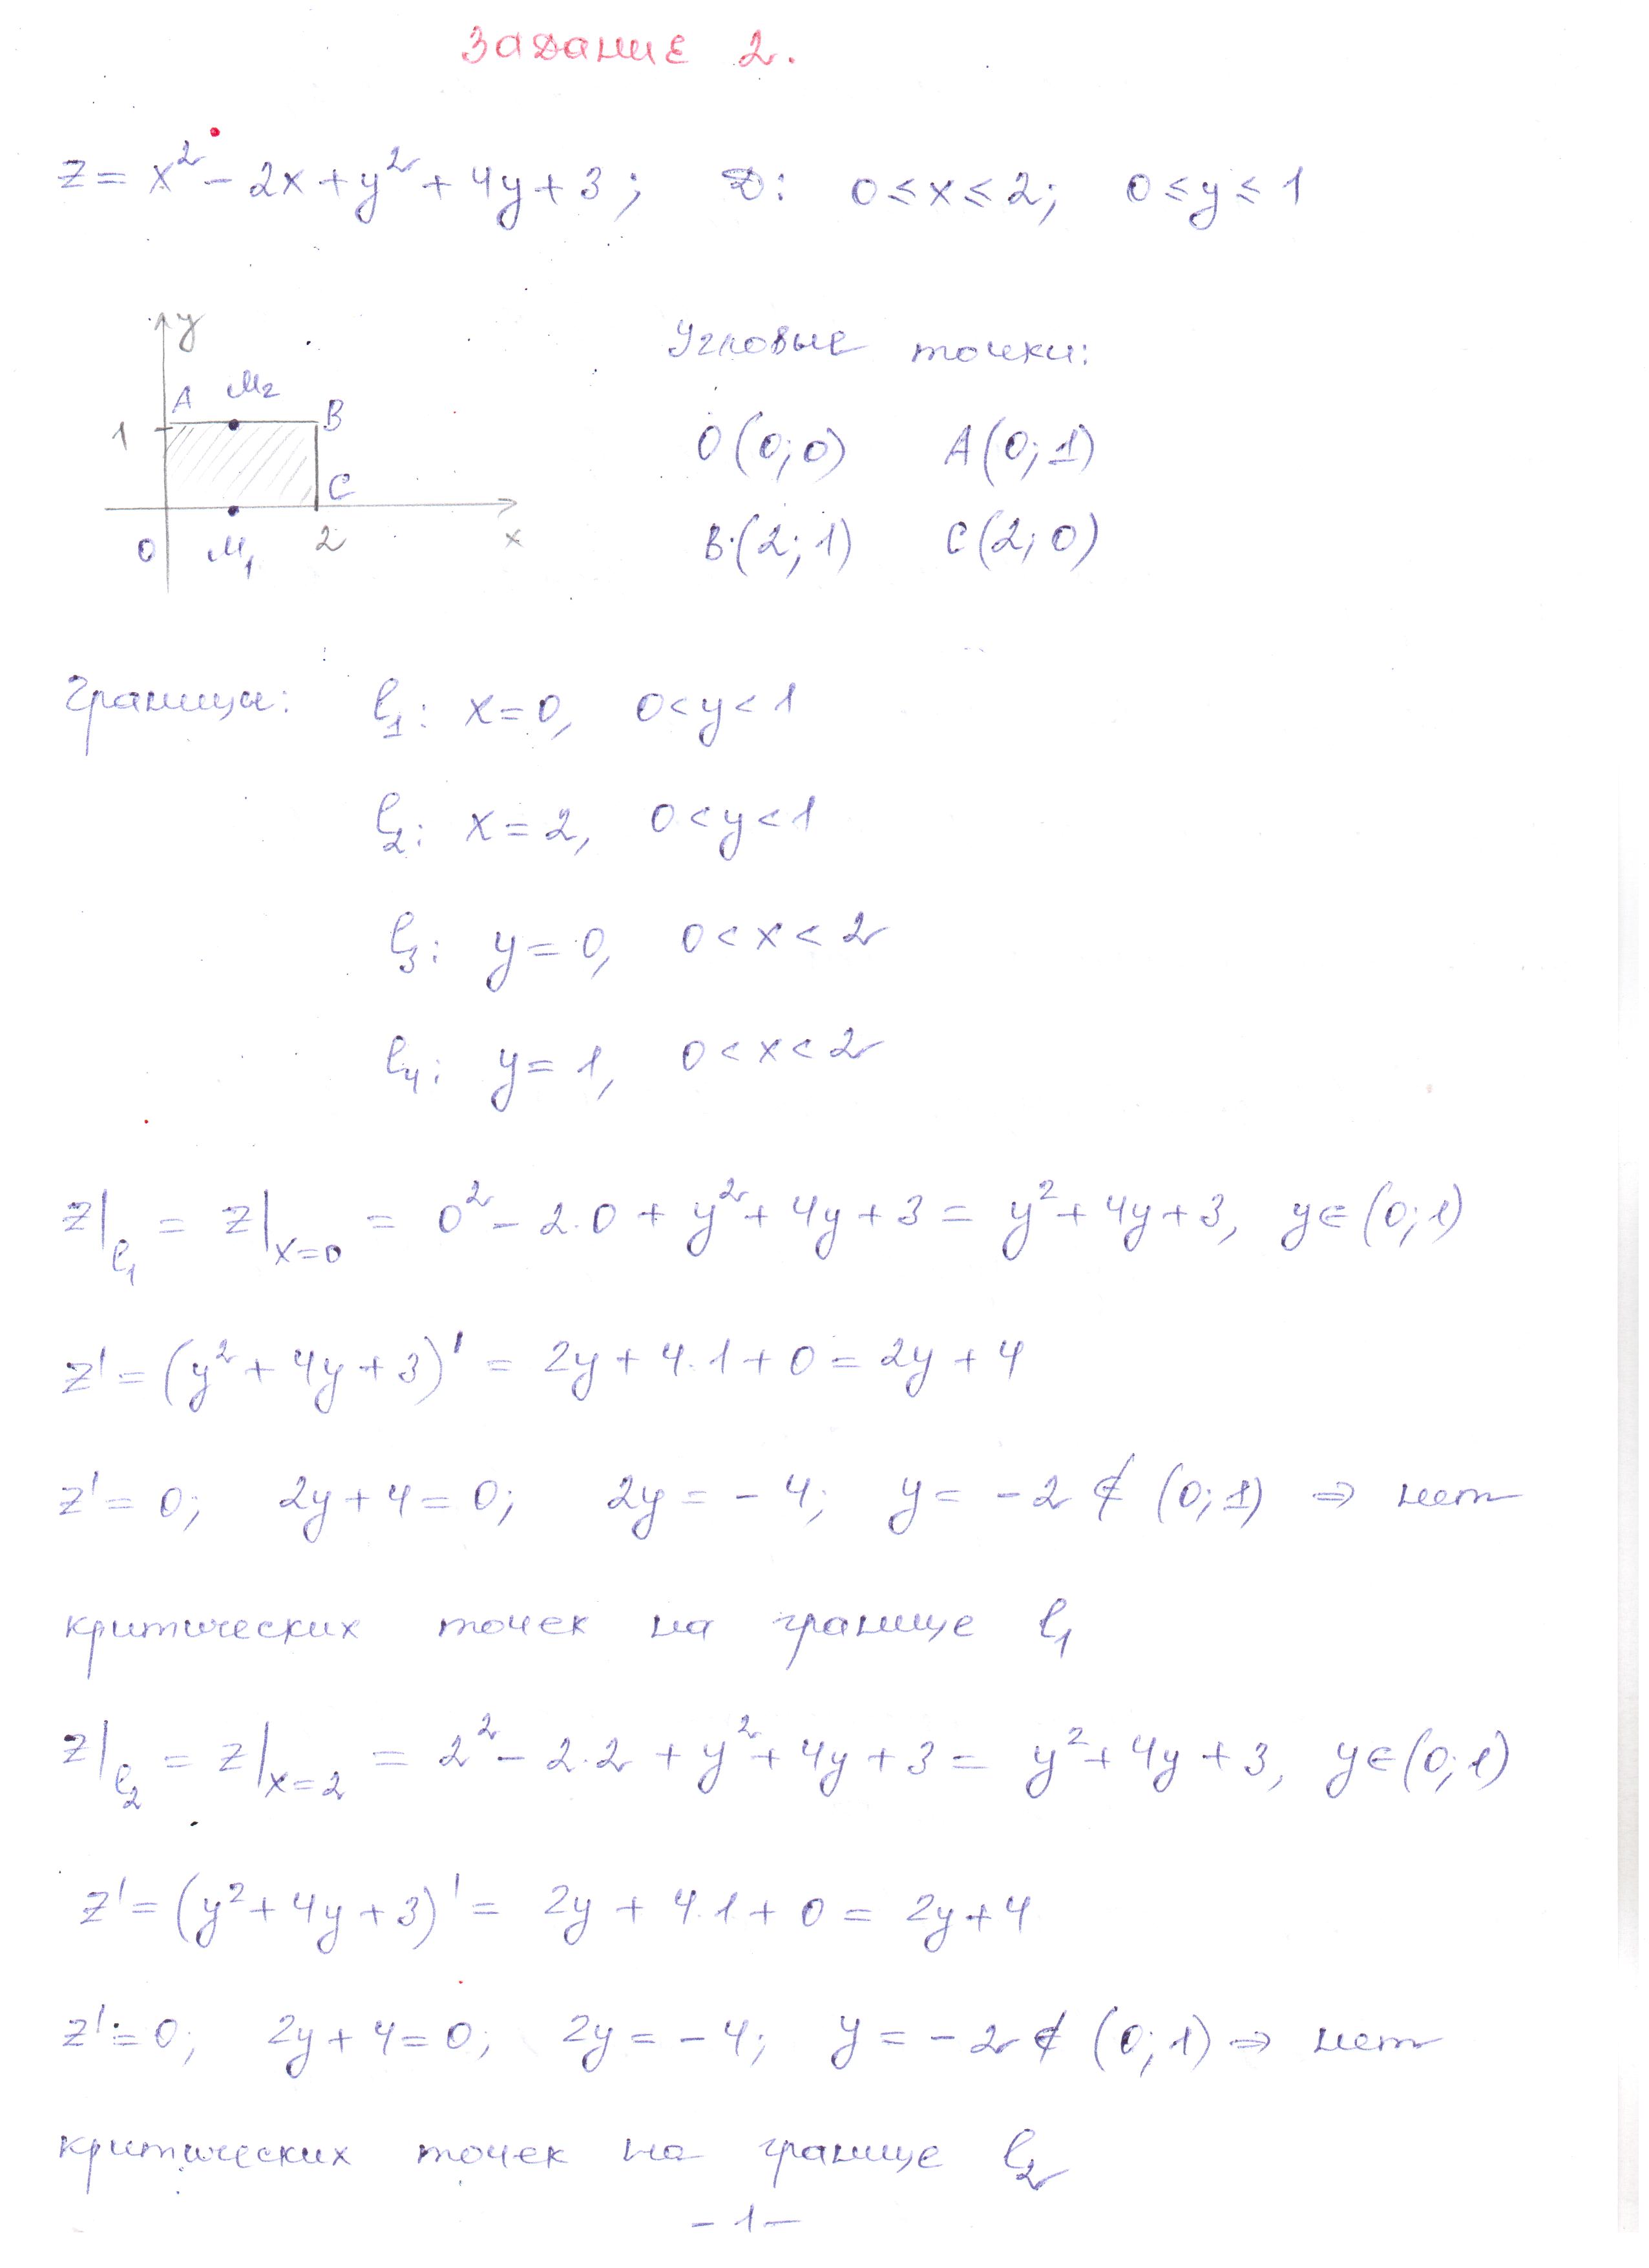 Задание 2.
z = x² - 2x + y² + 4y + 3; D: 0 ≤ x ≤ 2; 0 ≤ y ≤ 1
y
A M₂ B
1
C
0 M₁ 2 x
Угловые точки:
O(0;0) A(0;1)
B(2;1) C(2;0)
Границы: l₁: x=0, 0<y<1
l₂: x=2, 0<y<1
l₃: y=0, 0<x<2
l₄: y=1, 0<x<2
z|l₁ = z|x=0 = 0² - 2·0 + y² + 4y + 3 = y² + 4y + 3, y∈(0;1)
z' = (y² + 4y + 3)' = 2y + 4·1 + 0 = 2y + 4
z' = 0; 2y + 4 = 0; 2y = -4; y = -2 ∉ (0;1) ⇒ нет
критических точек на границе l₁
z|l₂ = z|x=2 = 2² - 2·2 + y² + 4y + 3 = y² + 4y + 3, y∈(0;1)
z' = (y² + 4y + 3)' = 2y + 4·1 + 0 = 2y + 4
z' = 0; 2y + 4 = 0; 2y = -4; y = -2 ∉ (0;1) ⇒ нет
критических точек на границе l₂
- 1 -